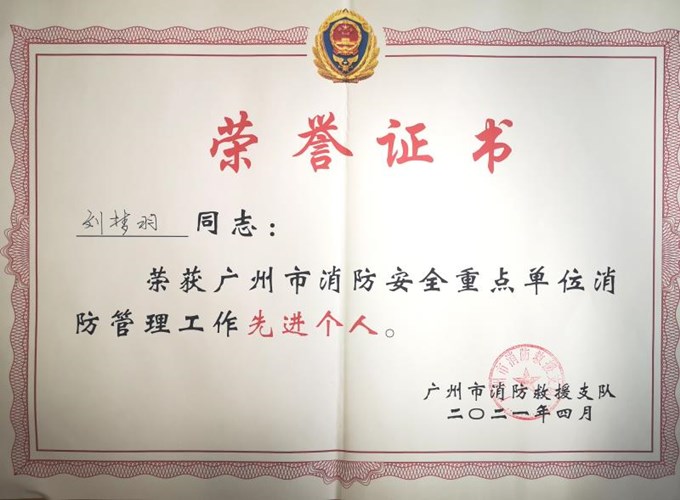 荣誉证书
刘梦羽 同志：
荣获广州市消防安全重点单位消
防管理工作先进个人。
广州市消防救援支队
二〇二一年四月